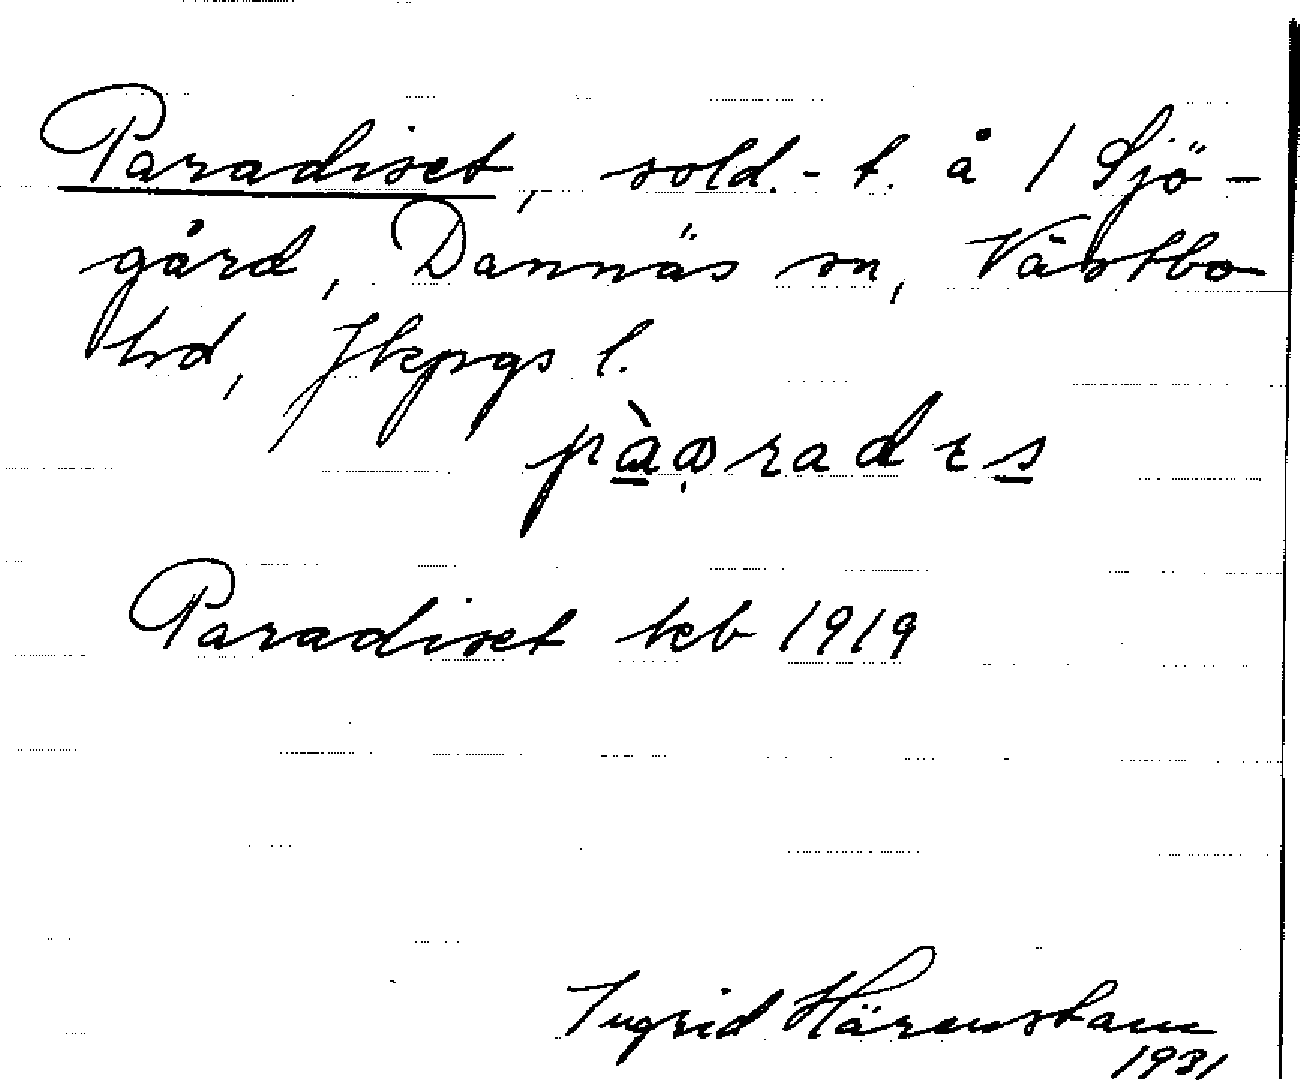 Paradiset, sold.-t. å 1 Sjö-
gård, Dannäs sn, Västbo
hd, Jkpgs l.
Paradiset keb 1919
Ingrid Härenstam
1931